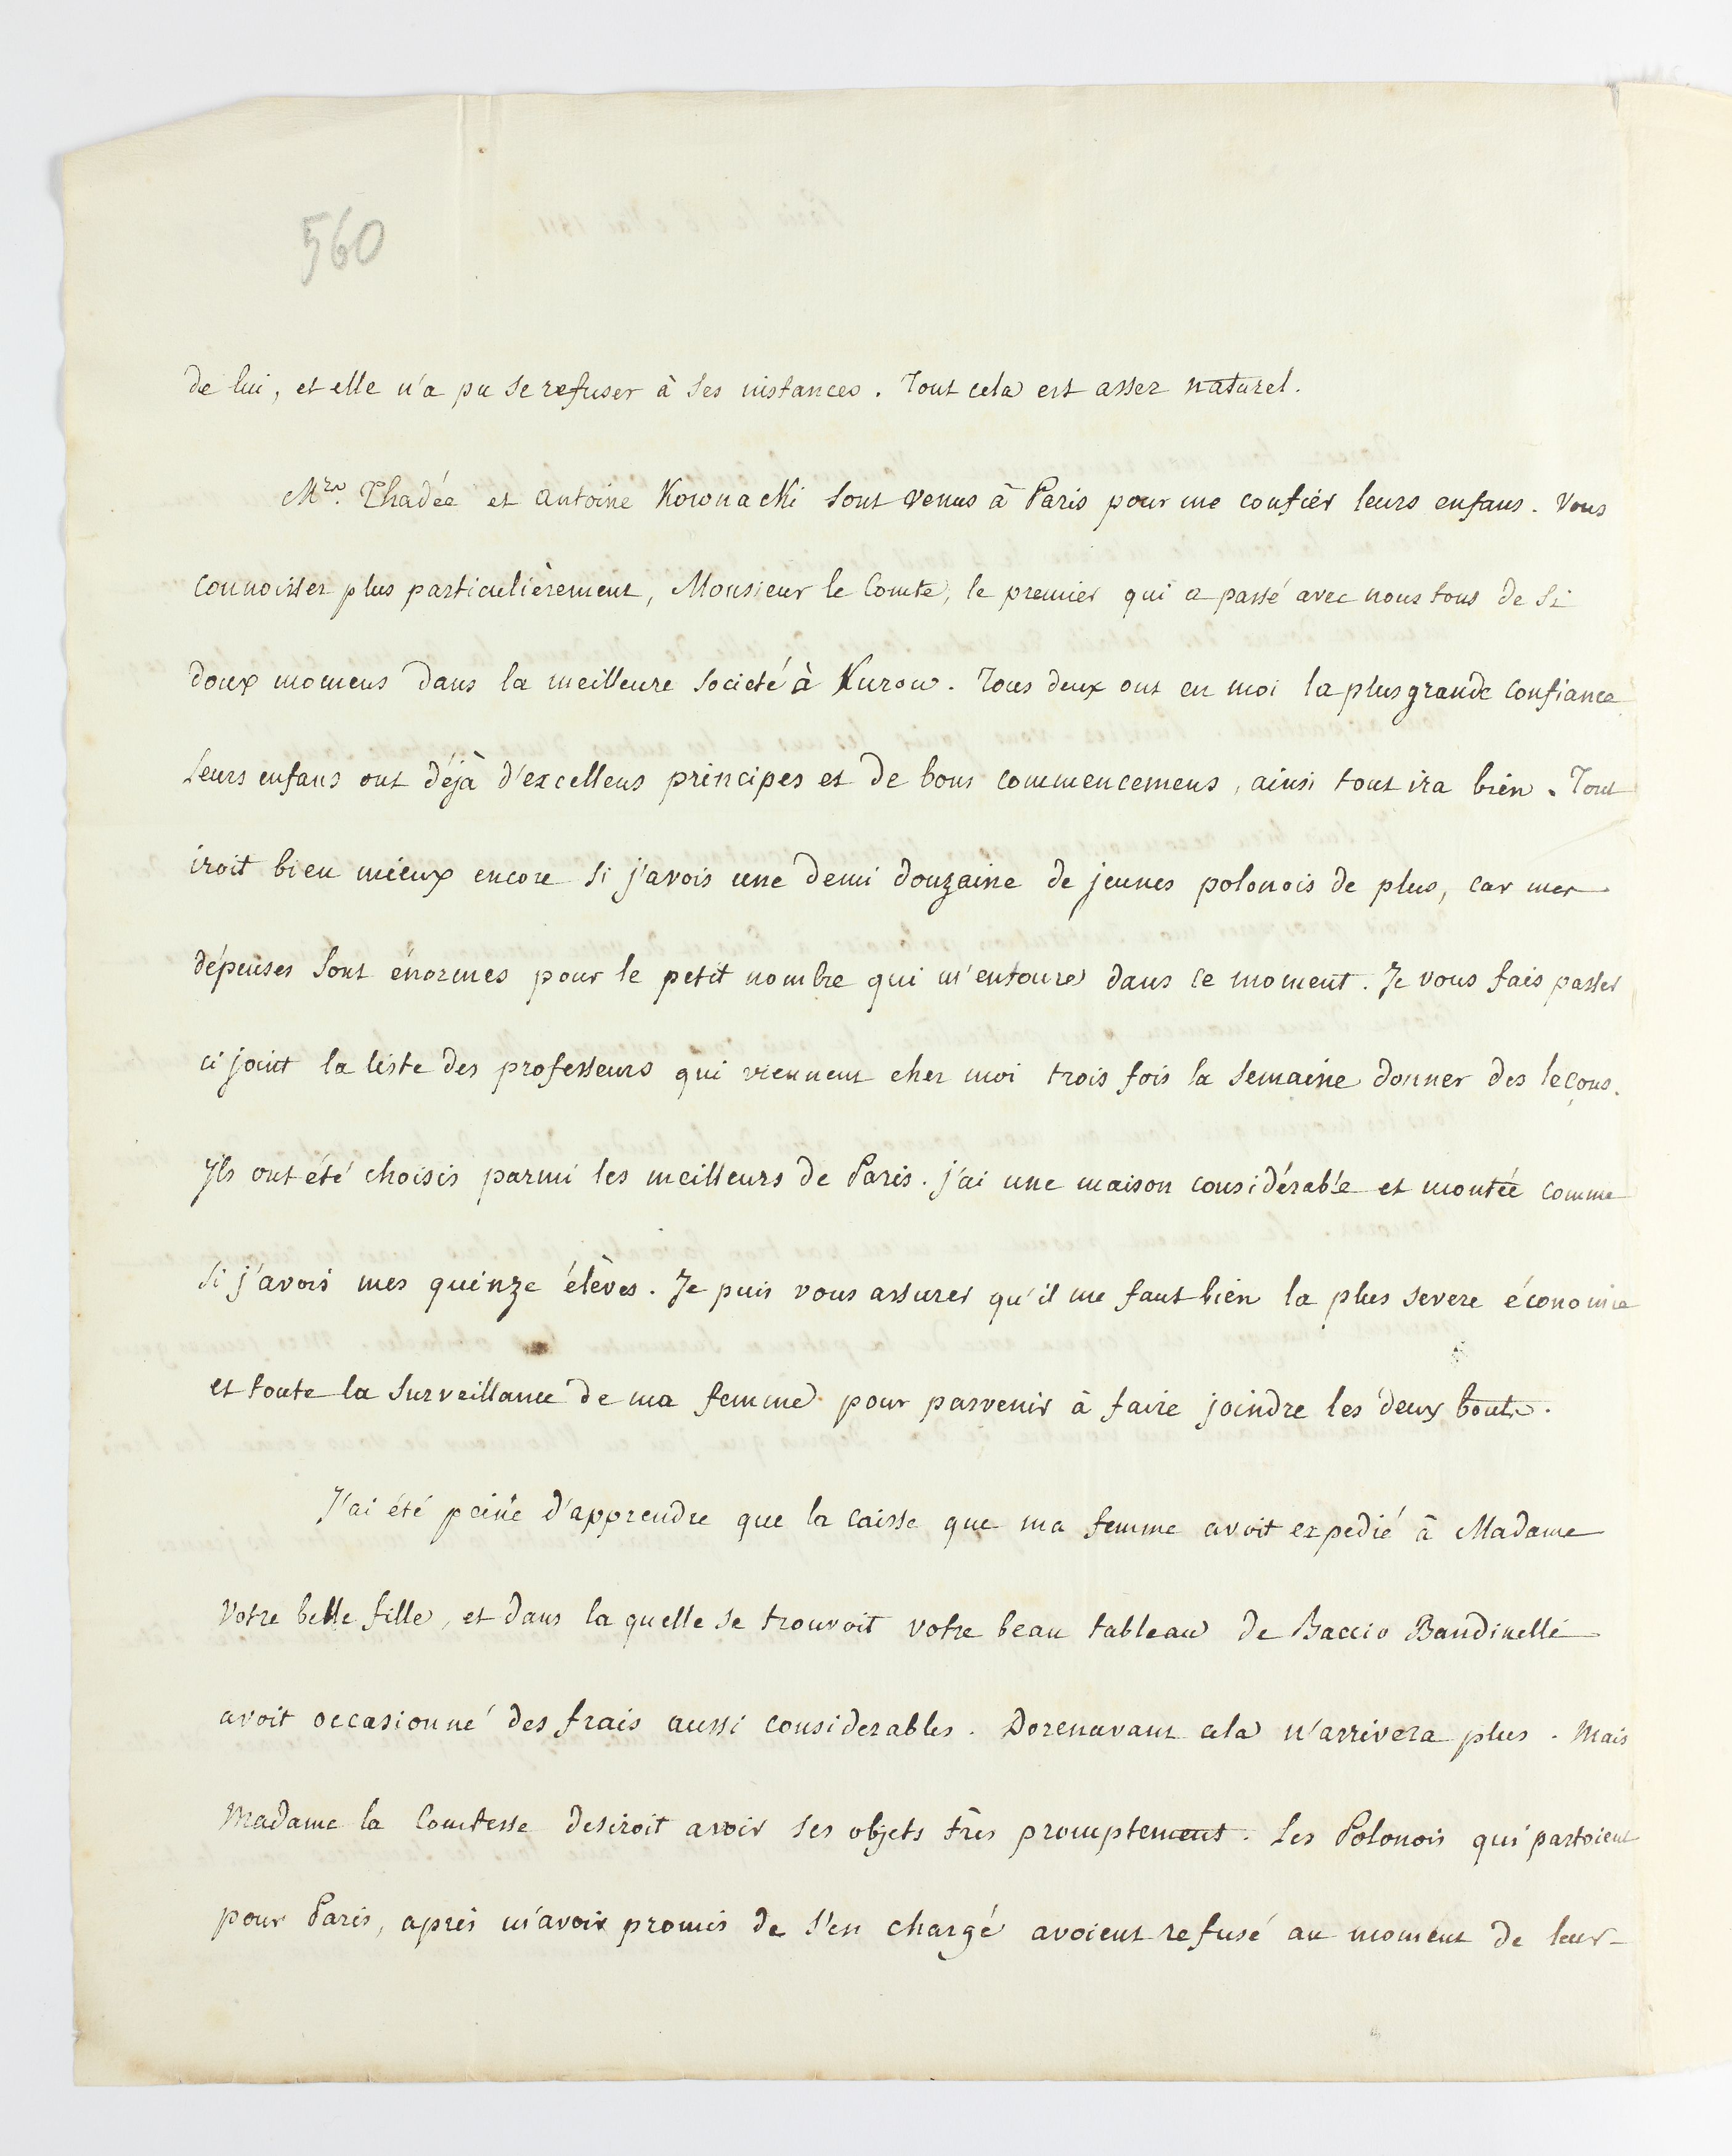 560
de lui, et elle n'a pu se refuser à ses instances. Tout cela est assez naturel.
Mrs. Thadée et Antoine Kownacki sont venus à Paris pour me confier leurs enfans. Vous
connoissez plus particulièrement, Monsieur le Comte, le premier qui a passé avec nous tous de si
doux momens dans la meilleure societé à Kurow. Tous deux ont en moi la plus grande confiance
Leurs enfans ont déjà d'excellens principes et de bons commencemens, ainsi tout ira bien. Tout
iroit bien mieux encore si j'avois une demi douzaine de jeunes polonois de plus, car mes
dépenses sont énormes pour le petit nombre qui m'entoure dans ce moment. Je vous fais passer
ci joint la liste des professeurs qui viennent chez moi trois fois la semaine donner des leçons.
Ils ont été choisis parmi les meilleurs de Paris. j'ai une maison considérable et montée comme
si j'avois mes quinze élèves. Je puis vous assurer qu'il me faut bien la plus severe économie
et toute la surveillance de ma femme pour parvenir à faire joindre les deux bouts.
J'ai été peiné d'apprendre que la caisse que ma femme avoit expedié à Madame
Votre belle fille, et dans la quelle se trouvoit votre beau tableau de Baccio Bandinelli
avoit occasionné des frais aussi considerables. Dorenavant cela n'arrivera plus. Mais
Madame la Comtesse desiroit avoir ses objets très promptement. Les Polonois qui partoient
pour Paris, après m'avoir promis de s'en chargé avoient refusé au moment de leur